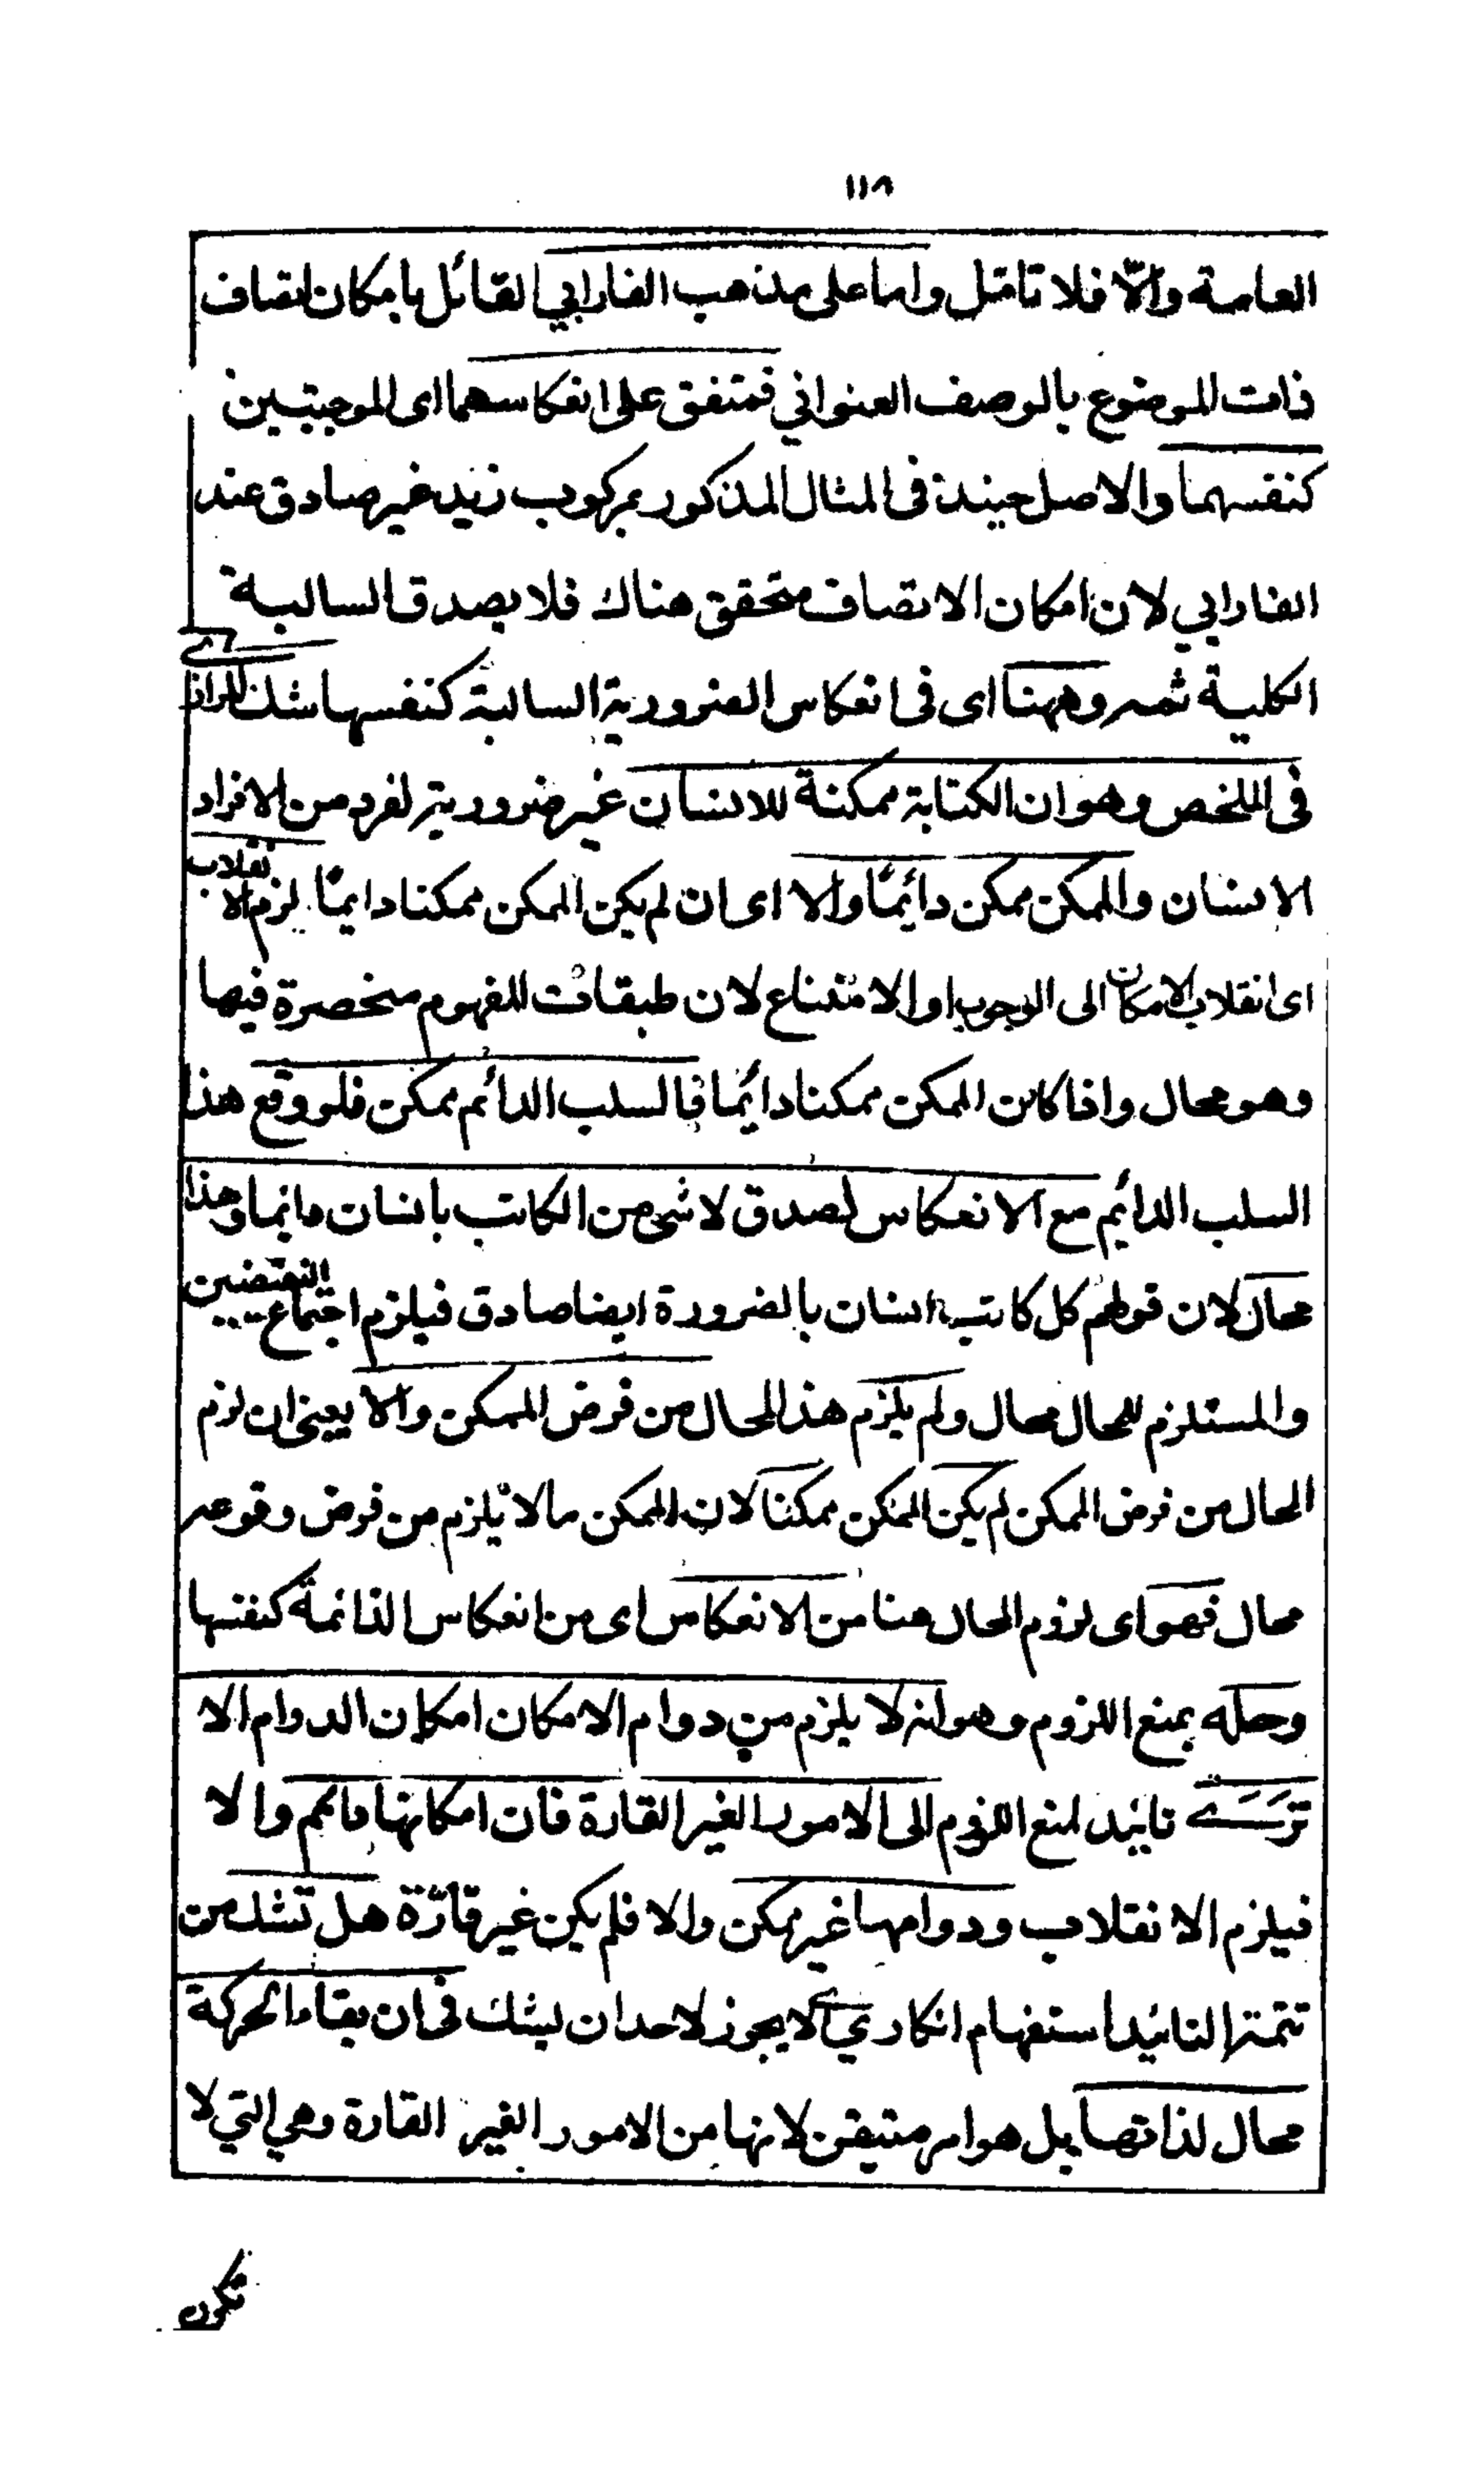 ١١٨
العامة والّا فلا تامّل واما على مذهب الفارابي القائل بامكان اتصاف
ذات الموضوع بالوصف العنواني فمتفق على انعكاسهما اى الموجبتين
كنفسهما والاصل حينئذ فى المثال المذكور بمركوب زيد غير صادق عند
الفارابي لان امكان الاتصاف متحقق هناك فلا يصدق السالبة
الكلية ثمه وههنا اى فى انعكاس الضرورية السالبة كنفسها شك للرازى
فى الملخص وهو ان الكتابة ممكنة للانسان غير ضرورية لفرد من الافراد
الانسان والممكن ممكن دائمًا والا اى ان لم يكن الممكن ممكنا دايمًا لزم الانقلاب
اى انقلاب الامكان الى الوجوب او الامتناع لان طبقات المفهوم منخصرة فيها
وهو محال واذا كان الممكن ممكنا دائما فالسلب الدائم ممكن فلو وقع هذا
السلب الدائم مع الانعكاس لصدق لا شئ من الكاتب بانسان دائما وهذا
محال لان قولهم كل كاتب انسان بالضرورة ايضا صادق فيلزم اجتماع النقيضين
والمستلزم للمحال محال ولم يلزم هذا المحال من فرض الممكن والا يعنى ان لزم
المحال من فرض الممكن لم يكن الممكن ممكنا لان الممكن ما لا يلزم من فرض وقوعه
محال فهو اى لزوم المحال هنا من الانعكاس اى من انعكاس الدائمة كنفسها
وحله بمنع اللزوم وهو انه لا يلزم من دوام الامكان امكان الدوام الا
ترى تائيد لمنع اللزوم الى الامور الغير القارة فان امكانها دائم والا
فيلزم الانقلاب ودوامها غير ممكن والا فلم يكن غير قارّة هل تشك من
تتمة التائيد استفهام انكاري اى لا يجوز لاحد ان يشك فى ان بقاء الحركة
محال لذاتها بل هو امر متيقن لانها من الامور الغير القارة وهي التي لا
تكون